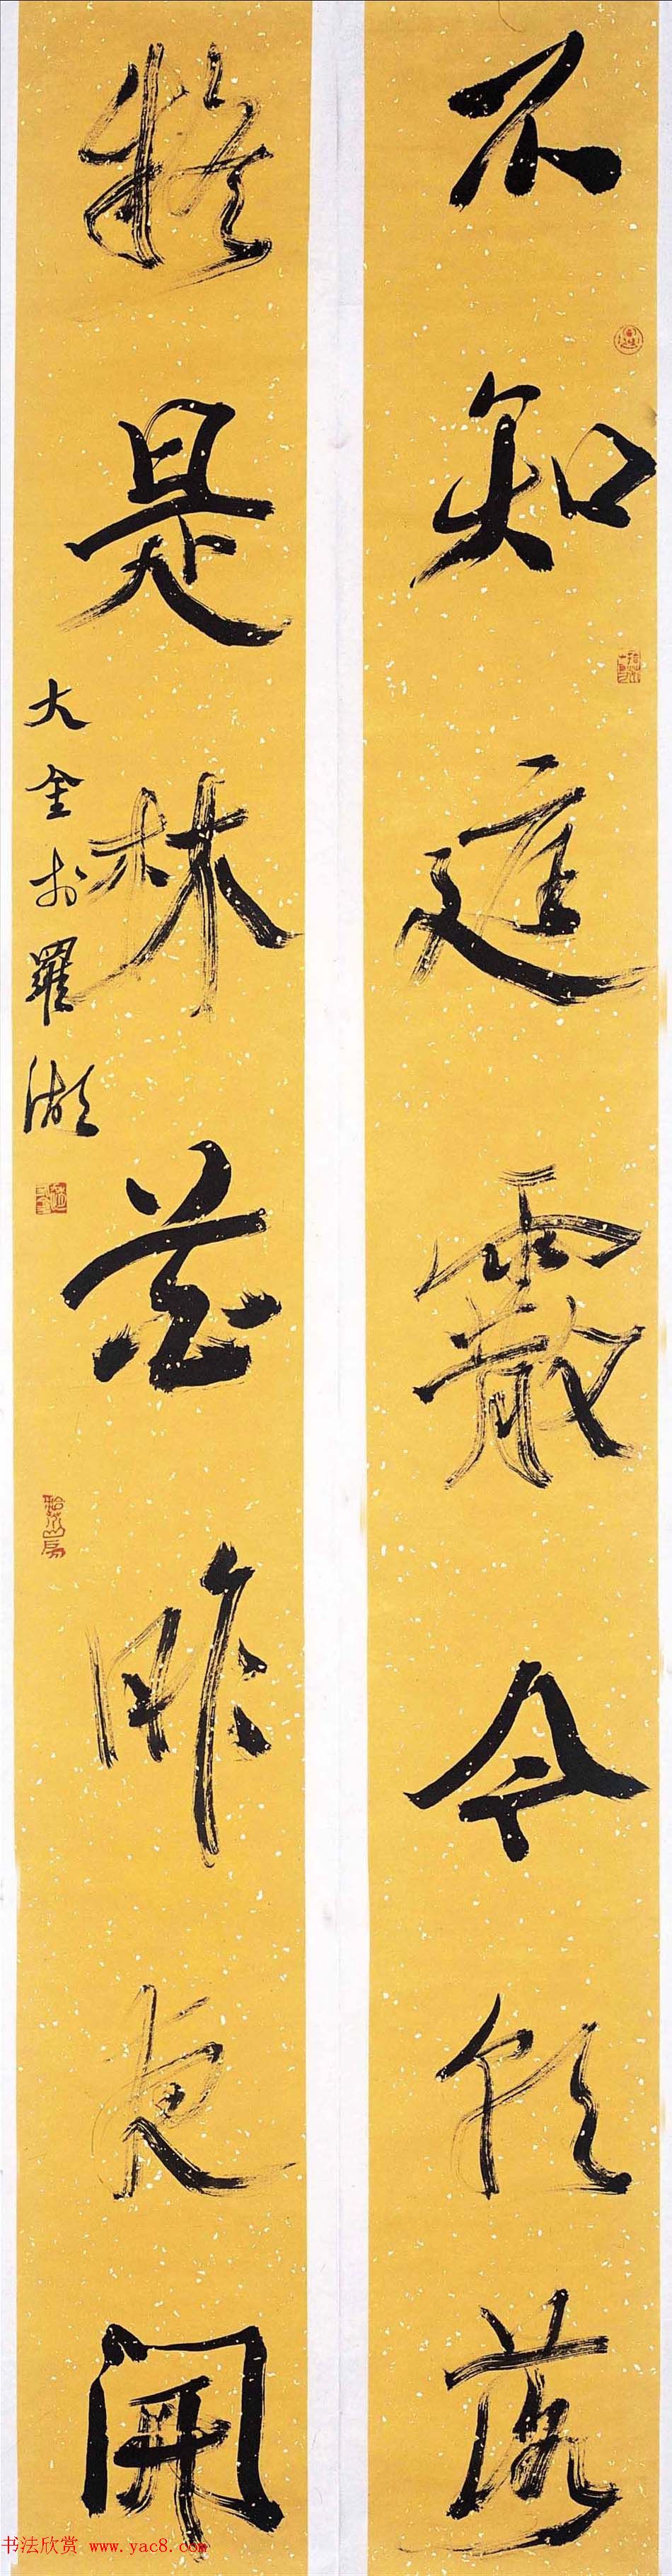 不知庭霰今朝落
疑是林花昨夜開
大金於羅湖
书法欣赏 www.yac8.com